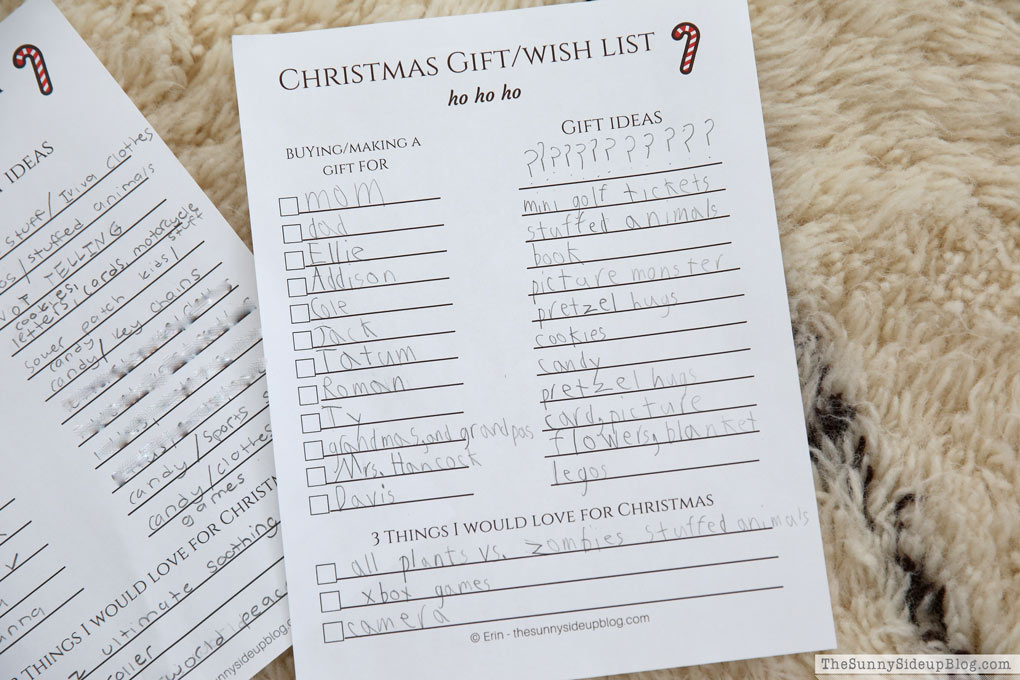 IDEAS
stuff/Iviva clothes
os/stuffed animals
VOT TELLING
cookies,
letters, cards, motorcycle
sower patch kids/stuff
candy
candy/key chains
candy/sports
candy/clothes
games
3 THINGS I WOULD LOVE FOR CHRISTM
ultimate soothing
oller world peac
nna
sunnysideupblog.com
CHRISTMAS GIFT/WISH LIST
ho ho ho
BUYING/MAKING A
GIFT FOR
GIFT IDEAS
mom ?????????
dad mini golf tickets
Ellie stuffed animals
Addison book
Cole picture monster
Jack pretzel hugs
Tatum cookies
Roman candy
Ty pretzel hugs
grandmas, and grandpas card, picture
Mrs. Hancock flowers, blanket
Davis legos
3 THINGS I WOULD LOVE FOR CHRISTMAS
all plants vs. zombies stuffed animals
xbox games
camera
© Erin - thesunnysideupblog.com
TheSunnySideupBlog.com